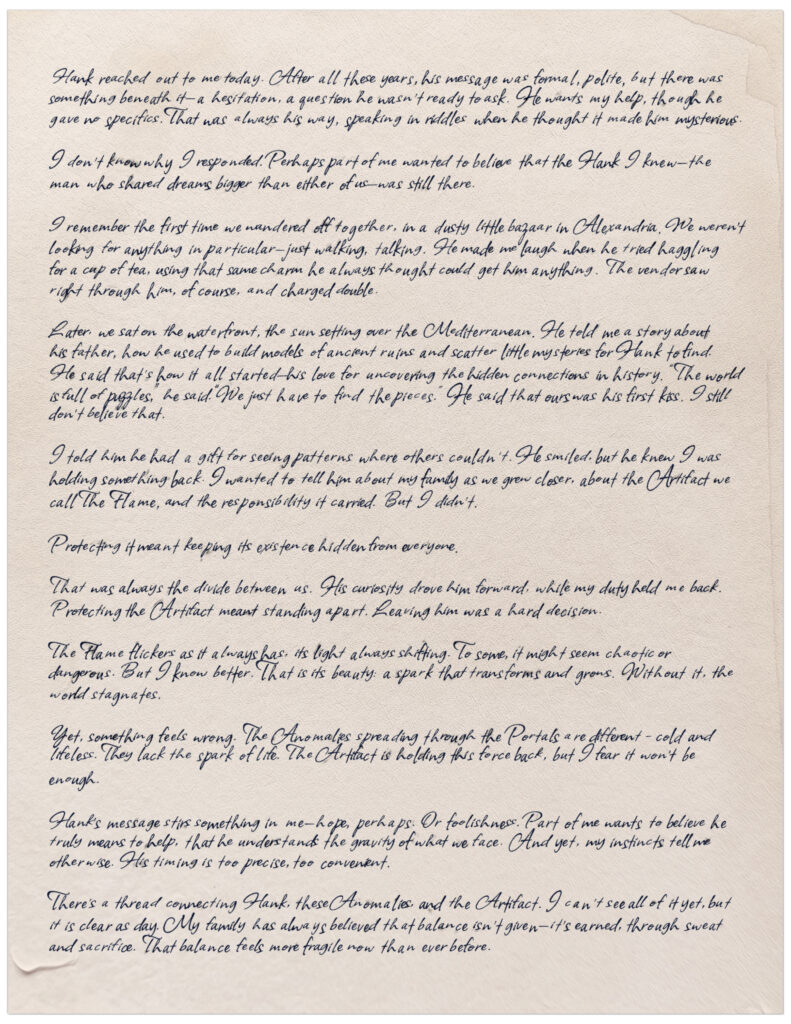 Hank reached out to me today. After all these years, his message was formal, polite, but there was
something beneath it—a hesitation, a question he wasn't ready to ask. He wants my help, though he
gave no specifics. That was always his way, speaking in riddles when he thought it made him mysterious.
I don't know why I responded. Perhaps part of me wanted to believe that the Hank I knew—the
man who shared dreams bigger than either of us—was still there.
I remember the first time we wandered off together, in a dusty little bazaar in Alexandria. We weren't
looking for anything in particular—just walking, talking. He made me laugh when he tried haggling
for a cup of tea, using that same charm he always thought could get him anything. The vendor saw
right through him, of course, and charged double.
Later, we sat on the waterfront, the sun setting over the Mediterranean. He told me a story about
his father, how he used to build models of ancient ruins and scatter little mysteries for Hank to find.
He said that's how it all started—his love for uncovering the hidden connections in history. "The world
is full of puzzles," he said. "We just have to find the pieces." He said that ours was his first kiss. I still
don't believe that.
I told him he had a gift for seeing patterns where others couldn't. He smiled, but he knew I was
holding something back. I wanted to tell him about my family as we grew closer, about the Artifact we
call The Flame, and the responsibility it carried. But I didn't.
Protecting it meant keeping its existence hidden from everyone.
That was always the divide between us. His curiosity drove him forward, while my duty held me back.
Protecting the Artifact meant standing apart. Leaving him was a hard decision.
The Flame flickers as it always has, its light always shifting. To some, it might seem chaotic or
dangerous. But I know better. That is its beauty: a spark that transforms and grows. Without it, the
world stagnates.
Yet, something feels wrong. The Anomalies spreading through the Portals are different - cold and
lifeless. They lack the spark of life. The Artifact is holding this force back, but I fear it won't be
enough.
Hank's message stirs something in me—hope, perhaps. Or foolishness. Part of me wants to believe he
truly means to help, that he understands the gravity of what we face. And yet, my instincts tell me
otherwise. His timing is too precise, too convenient.
There's a thread connecting Hank, these Anomalies, and the Artifact. I can't see all of it yet, but
it is clear as day. My family has always believed that balance isn't given—it's earned, through sweat
and sacrifice. That balance feels more fragile now than ever before.